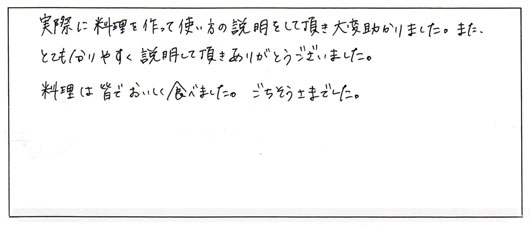 実際に料理を作って使い方の説明をして頂き大変助かりました。また、
とても分りやすく説明して頂きありがとうございました。
料理は皆でおいしく食べました。ごちそうさまでした。